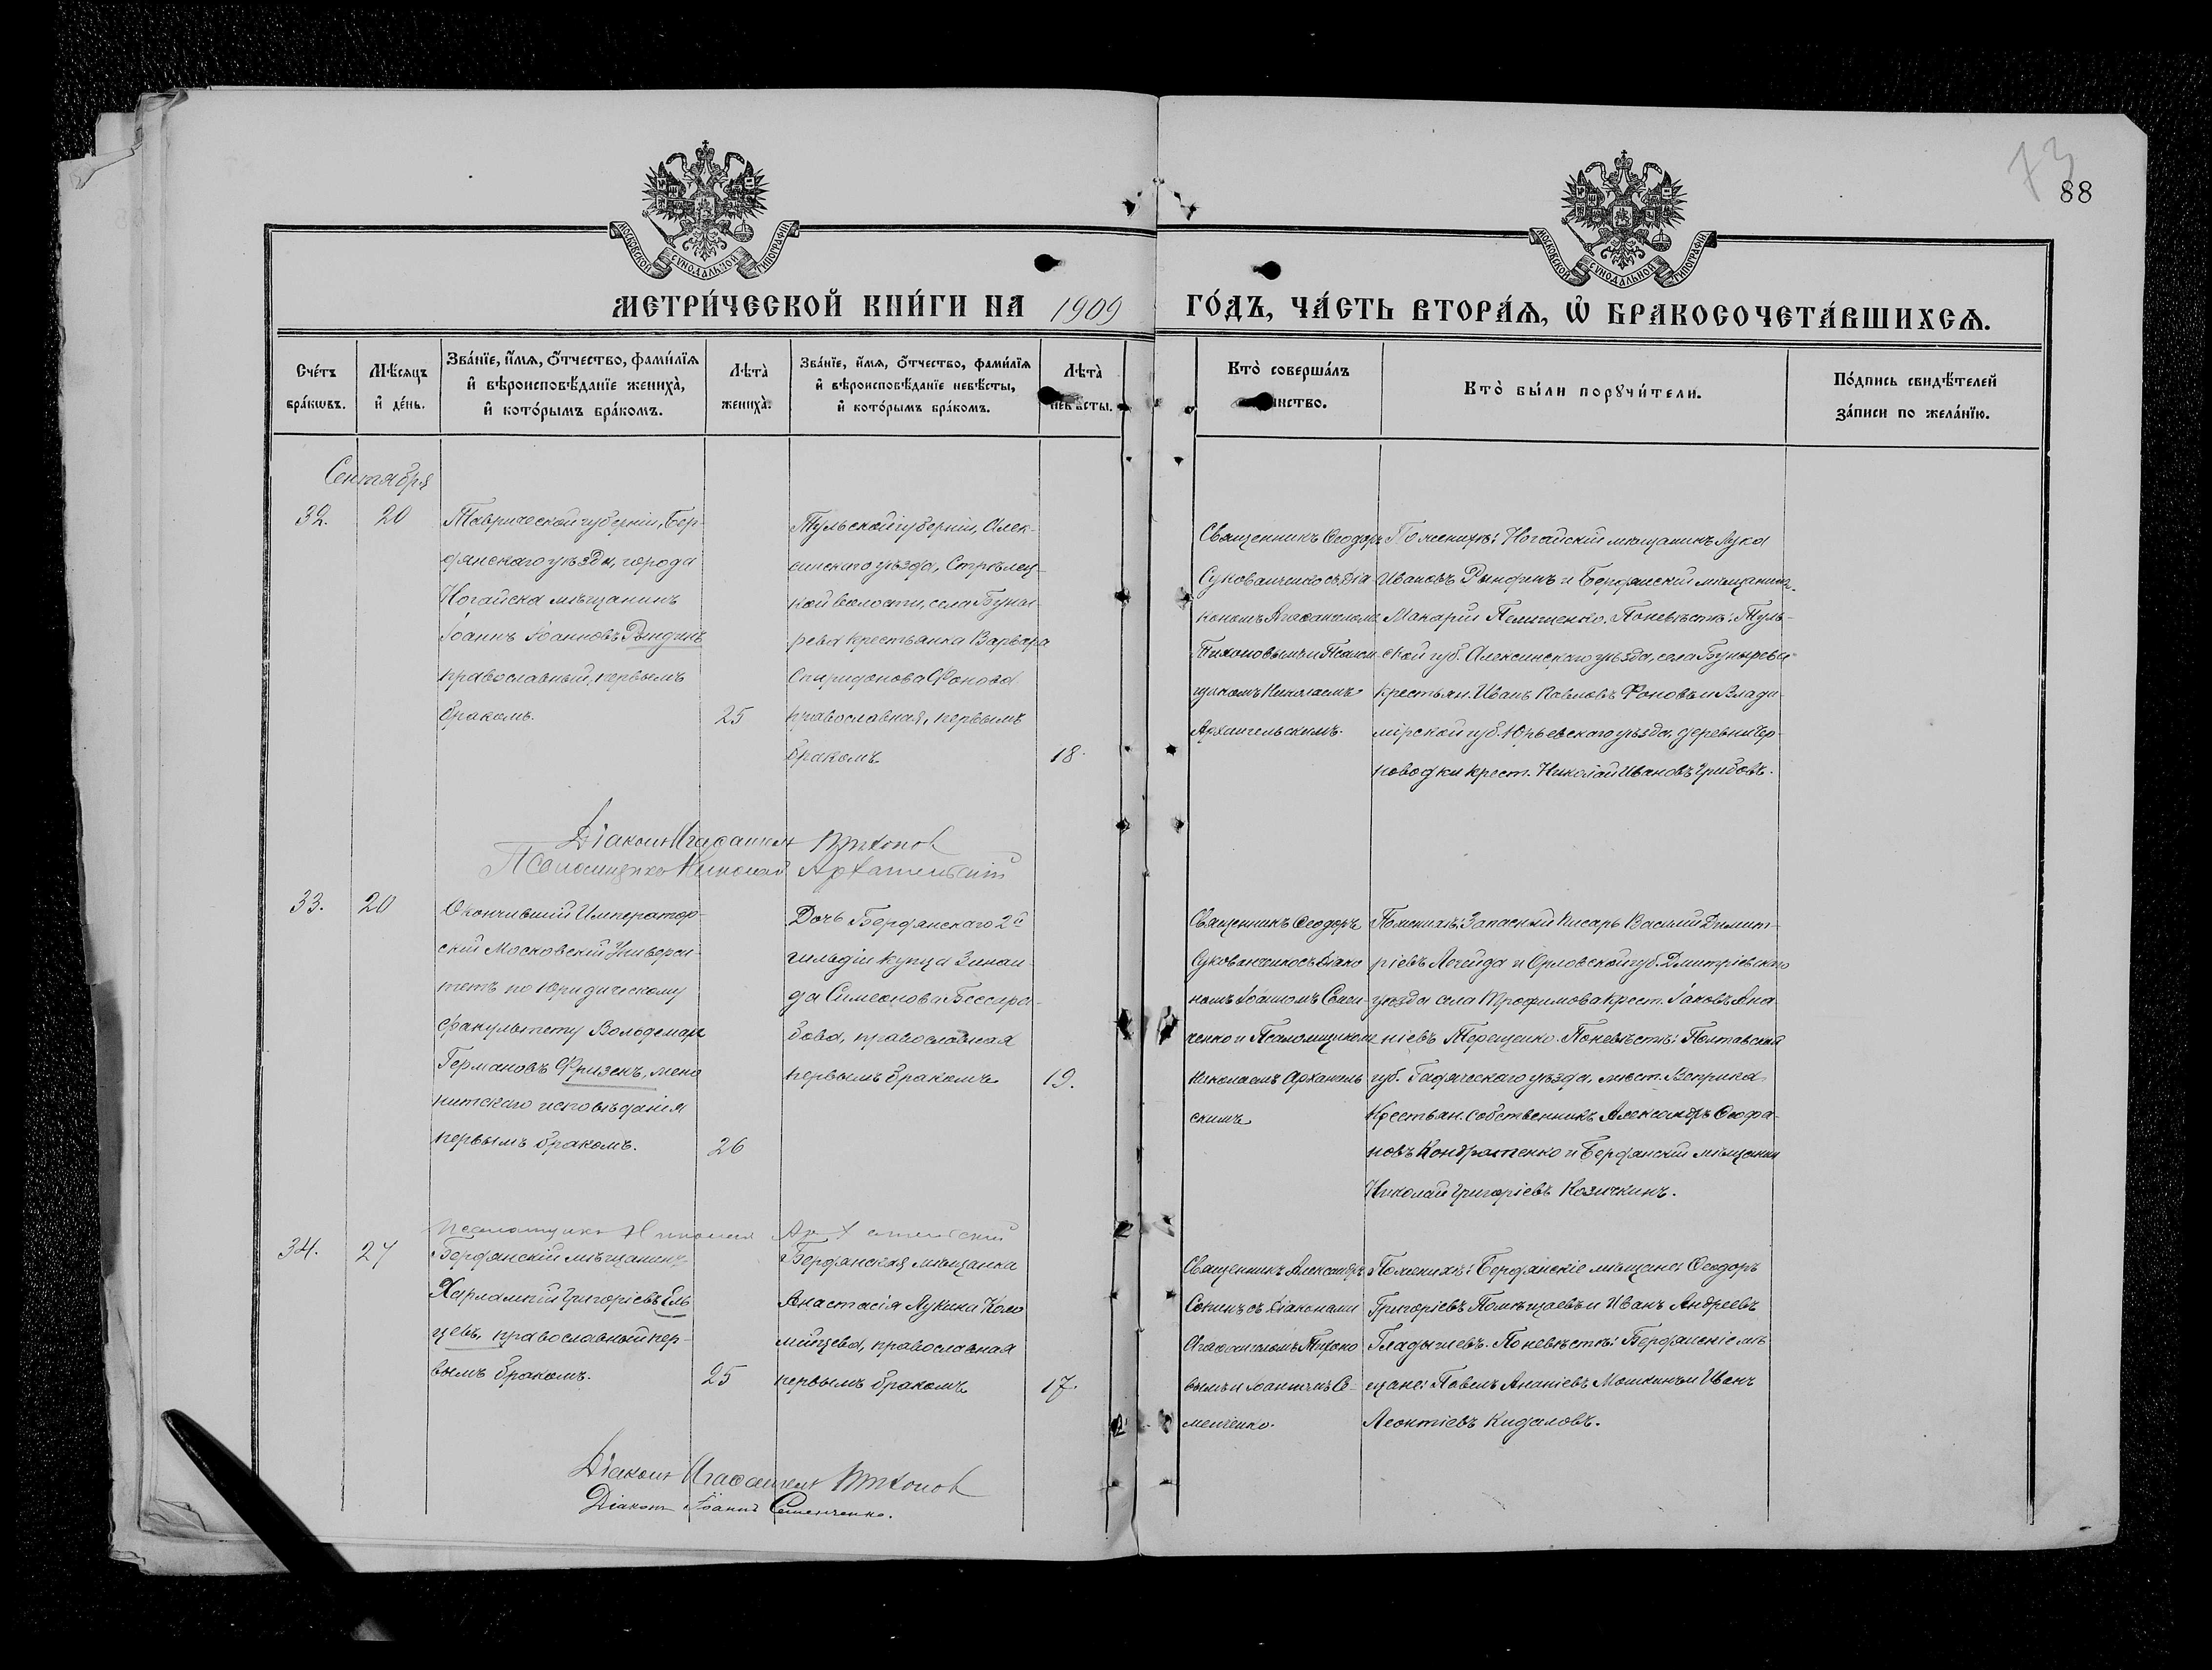 73
88
МОСКОВСКОЙ СУНОДАЛЬНОЙ ТИПОГРАФІИ
МОСКОВСКОЙ СУНОДАЛЬНОЙ ТИПОГРАФІИ
МЕТРИ́ЧЕСКОЙ КНИ́ГИ НА 1909 ГО́ДЪ, ЧА́СТЬ ВТОРА́Ѧ, Ѽ БРАКОСОЧЕТА́ВШИХСѦ.
Сче́тъ
бра́кѡвъ.
Мѣ́сяцъ
и҆ де́нь.
Зва́нїе, и҆́мѧ, ѻ҆́тчество, фами́лїѧ
и҆ вѣроисповѣ́данїе жениха̀,
и҆ кото́рымъ бра́комъ.
Лѣта̀
жениха̀.
Зва́нїе, и҆́мѧ, ѻ҆́тчество, фами́лїѧ
и҆ вѣроисповѣ́данїе невѣ́сты,
и҆ кото́рымъ бра́комъ.
Лѣта̀
невѣсты.
Кто̀ соверша́лъ
инство.
Кто̀ бы́ли порꙋчи́тели.
По́дпись свидѣ́телей
за́писи по жела́нїю.
Сентября
32.
20
Таврической губерніи, Бер-
дянскаго уѣзда, города
Ногайска мѣщанинъ
Іоаннъ Іоанновъ Рындинъ
православный, первымъ
бракомъ.
25
Тульской губерніи, Алек-
синскаго уѣзда, Стрѣлец-
кой волости, села Буны-
рева крестьянка Варвара
Спиридонова Фонова
православная, первымъ
бракомъ
18.
Священникъ Ѳеодоръ
Сукованченко съ діа-
кономъ Агаѳангеломъ
Тихоновымъ и Псалом-
щикомъ Николаемъ
Архангельскимъ.
По женихѣ: Ногайскій мѣщанинъ Лука
Ивановъ Рындинъ и Бердянскій мѣщанинъ
Макарій Пелищенко. По невѣстѣ: Туль-
ской губ. Алексинскаго уѣзда, села Бунырева
крестьян. Иванъ Павловъ Фоновъ и Влади-
мірской губ. Юрьевскаго уѣзда, деревни Чер-
новодки крест. Николай Ивановъ Грибовъ.
Діаконъ Агаѳангелъ Тихонов
Псаломщикъ Николай Архангельскій
33.
20
Окончившій Император-
скій Московскій Универси-
тетъ по Юридическому
факультету Вольдемаръ
Германовъ Фризенъ, мено-
нитскаго исповѣданія
первымъ бракомъ.
26
Дочь Бердянскаго 2й
гильдіи купца Зинаи-
да Симеонова Бессара-
бова, православная
первымъ бракомъ
19.
Священникъ Ѳеодоръ
Сукованченко съ діако-
номъ Іоанномъ Семен-
ченко и Псаломщикомъ
Николаемъ Архангель-
скимъ
По женихѣ: Запасный Писарь Василій Димит-
ріевъ Легейда и Орловской губ. Дмитріевскаго
уѣзда села Трофимова крест. Іаковъ Ана-
ніевъ Терещенко. По невѣстѣ: Полтавской
губ. Гадячскаго уѣзда, мѣст. Веприка
Крестьян. собственникъ Александръ Ѳеофа-
новъ Кондратенко и Бердянскій мѣщанин
Николай Григоріевъ Козичкинъ.
Псаломщикъ Николай Архангельский
34.
27
Бердянскій мѣщанинъ
Харлампій Григоріевъ Ель-
цевъ, православный пер-
вымъ бракомъ.
25
Бердянская мѣщанка
Анастасія Лукина Коло-
мийцева, православная
первымъ бракомъ
17.
Священникъ Александръ
Сокинъ съ діаконами
Агаѳангеломъ Тихоно-
вымъ и Іоанномъ Се-
менченко.
По женихѣ: Бердянскіе мѣщане: Ѳеодоръ
Григоріевъ Помѣщаевъ и Иванъ Андреевъ
Гладышевъ. По невѣстѣ: Бердянскіе мѣ-
щане: Павелъ Ананіевъ Мошкинъ и Иванъ
Леонтіевъ Кидаловъ.
Діаконъ Агаѳангелъ Тихонов
Діаконъ Іоаннъ Семенченко.